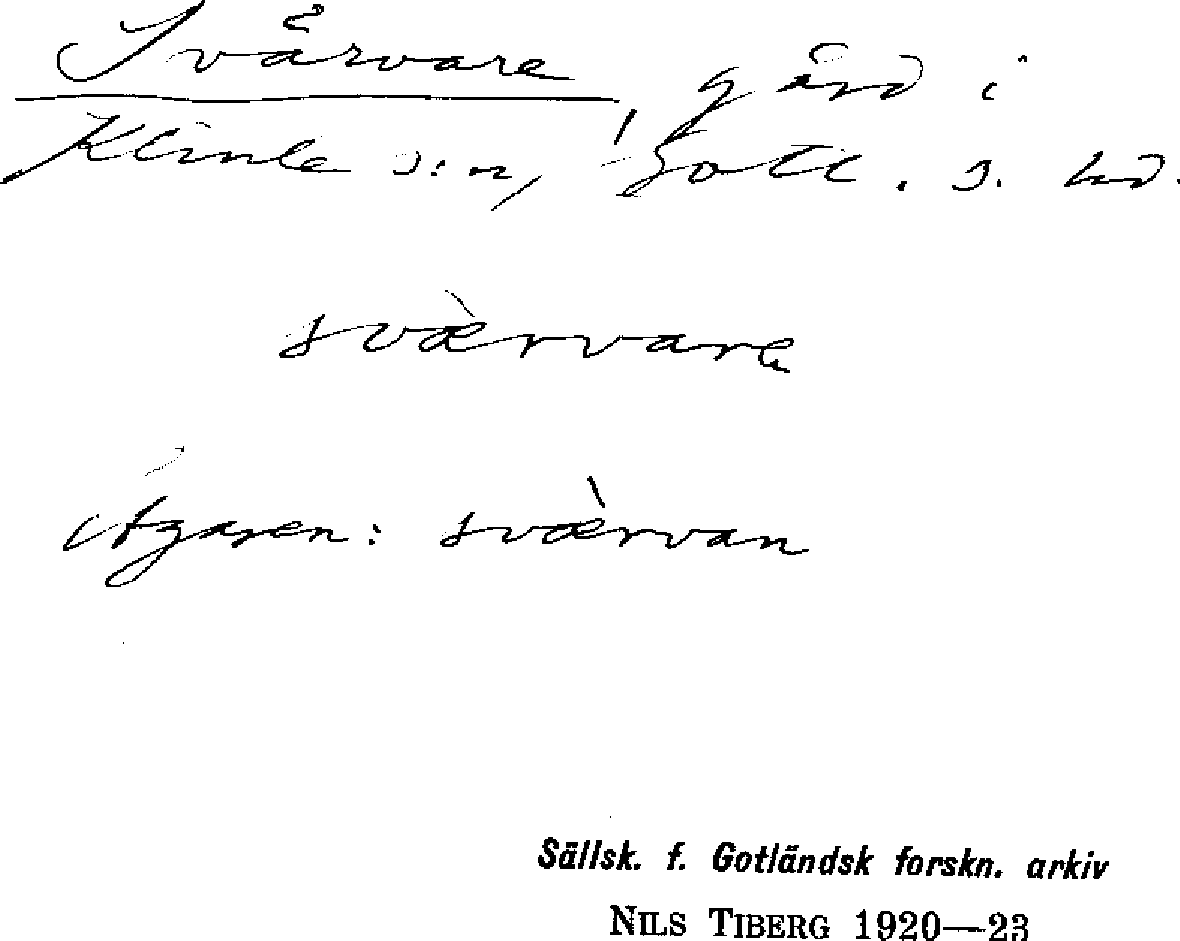 Svärvare, gård i
Klinte s:n, Gotl. s. hd.
svæ̀rvare
ägaren: svæ̀rvan
Sällsk. f. Gotländsk forskn. arkiv
NILS TIBERG 1920—23